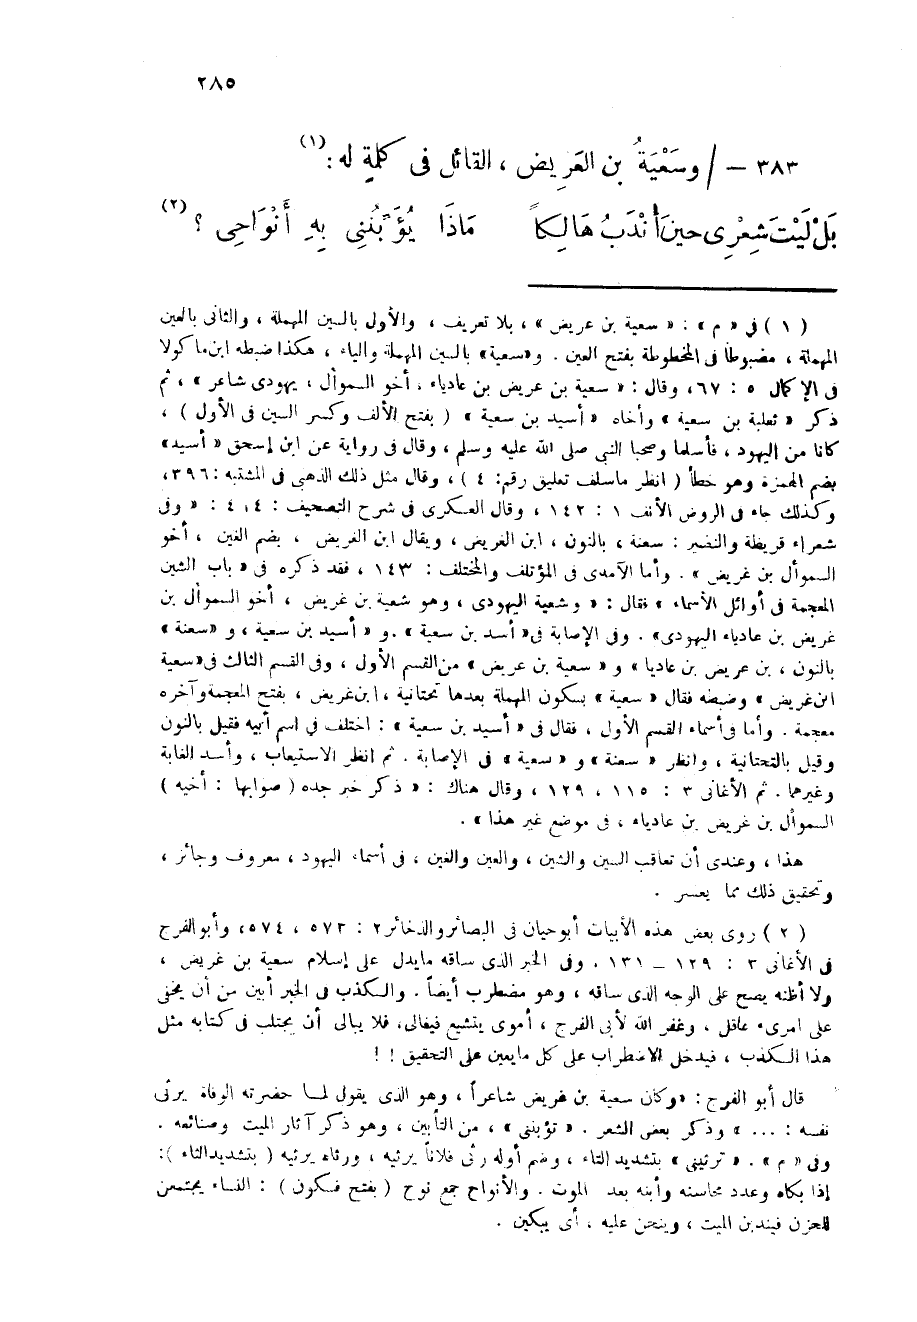 ٢٨٥
٣٨٣ – / وسَعْيَةُ بن العَرِيض ، القائل فى كلمةٍ له : (١)
بَلْ لَيْتَ شِعْرِى حِينَ أُنْدَبُ هَالِكاً مَاذَا يُؤَبِّنُنِى بِهِ أَنْوَاحِى ؟ (٢)
( ١ ) في « م » : « سعية بن عريض » ، بلا تعريف ، والأول بالسين المهملة ، والثانى بالعين
المهملة ، مضبوطاً فى المخطوطة بفتح العين . و«سعية» بالسين المهملة والياء ، هكذا ضبطه ابن ماكولا
فى الإكمال ٥ : ٦٧، وقال : « سعية بن عريض بن عادياء ، أخو السموأل ، يهودى شاعر » ، ثم
ذكر « ثعلبة بن سعية » وأخاه « أسيد بن سعية » ( بفتح الألف وكسر السين فى الأول ) ،
كانا من اليهود ، فأسلما وصحبا النبى صلى الله عليه وسلم ، وقال فى رواية عن ابن إسحق « أسيد»
بضم الهمزة وهو خطأ ( انظر ماسلف تعليق رقم: ٤ ) ، وقال مثل ذلك الذهبى فى المشتبه : ٣٩٦،
وكذلك جاء فى الروض الأنف ١ : ١٤٢ ، وقال العسكرى فى شرح التصحيف : ٤٠٤ : « وفى
شعراء قريظة والنضير : سعنة ، بالنون ، ابن الغريض ، ويقال ابن الغريض ، بضم الغين ، أخو
السموأل بن غريض » . وأما الآمدى فى المؤتلف والمختلف : ١٤٣ ، فقد ذكره فى « باب الشين
المعجمة فى أوائل الأسماء » فقال : « وشعية اليهودى ، وهو شعية بن غريض ، أخو السموأل بن
غريض بن عادياء اليهودى» . وفى الإصابة فى« أسد بن سعية » .و « أسيد بن سعية ، و «سعنة »
بالنون ، بن عريض بن عاديا » و « سعية بن عريض » من القسم الأول ، وفى القسم الثالث فى«سعية
ابن غريض » وضبطه فقال « سعية » بسكون المهملة بعدها تحتانية ، ابن غريض ، بفتح المعجمة وآخره
معجمة . وأما فى أسماء القسم الأول ، فقال فى « أسيد بن سعية » : اختلف فى اسم أبيه فقيل بالنون
وقيل بالتحتانية ، وانظر « سعنة » و « سعية » فى الإصابة . ثم انظر الاستيعاب ، وأسد الغابة
وغيرهما . ثم الأغانى ٣ : ١١٥ ، ١٢٩ ، وقال هناك : « ذكر خبر جده ( صوابها : أخيه )
السموأل بن غريض بن عادياء ، فى موضع غير هذا » .
هذا ، وعندى أن تعاقب السين والشين ، والعين والغين ، فى أسماء اليهود ، معروف وجائز ،
وتحقيق ذلك مما يعسر .
( ٢ ) روى بعض هذه الأبيات أبوحيان فى البصائر والذخائر ٢ : ٥٧٣ ، ٥٧٤، وأبوالفرج
فى الأغانى ٣ : ١٢٩ – ١٣١ . وفى الخبر الذى ساقه مايدل على إسلام سعية بن غريض ،
ولا أظنه يصح على الوجه الذى ساقه ، وهو مضطرب أيضاً . والكذب فى الخبر أبين من أن يخفى
على امرىء عاقل ، وغفر الله لأبى الفرج ، أموى يتشيع فيغالى، فلا يبالى أن يجتلب فى كتابه مثل
هذا الكذب ، فيدخل الاضطراب على كل مايعين على التحقيق ! !
قال أبو الفرج : «وكان سعية بن غريض شاعراً ، وهو الذى يقول لما حضرته الوفاة يرثى
نفسه : ... » وذكر بعض الشعر . « تؤبننى » ، من التأبين ، وهو ذكر آثار الميت وصنائعه .
وفى « م » . « ترثينى » بتشديد الثاء ، وضم أوله رثى فلاناً يرثيه ، ورثاه يرثيه ( بتشديد الثاء ):
إذا بكاه وعدد محاسنه وأبنه بعد الموت . والأنواح جمع نوح ( بفتح فسكون ) : النساء يجتمعن
للحزن فيندبن الميت ، وينحن عليه ، أى يبكين .